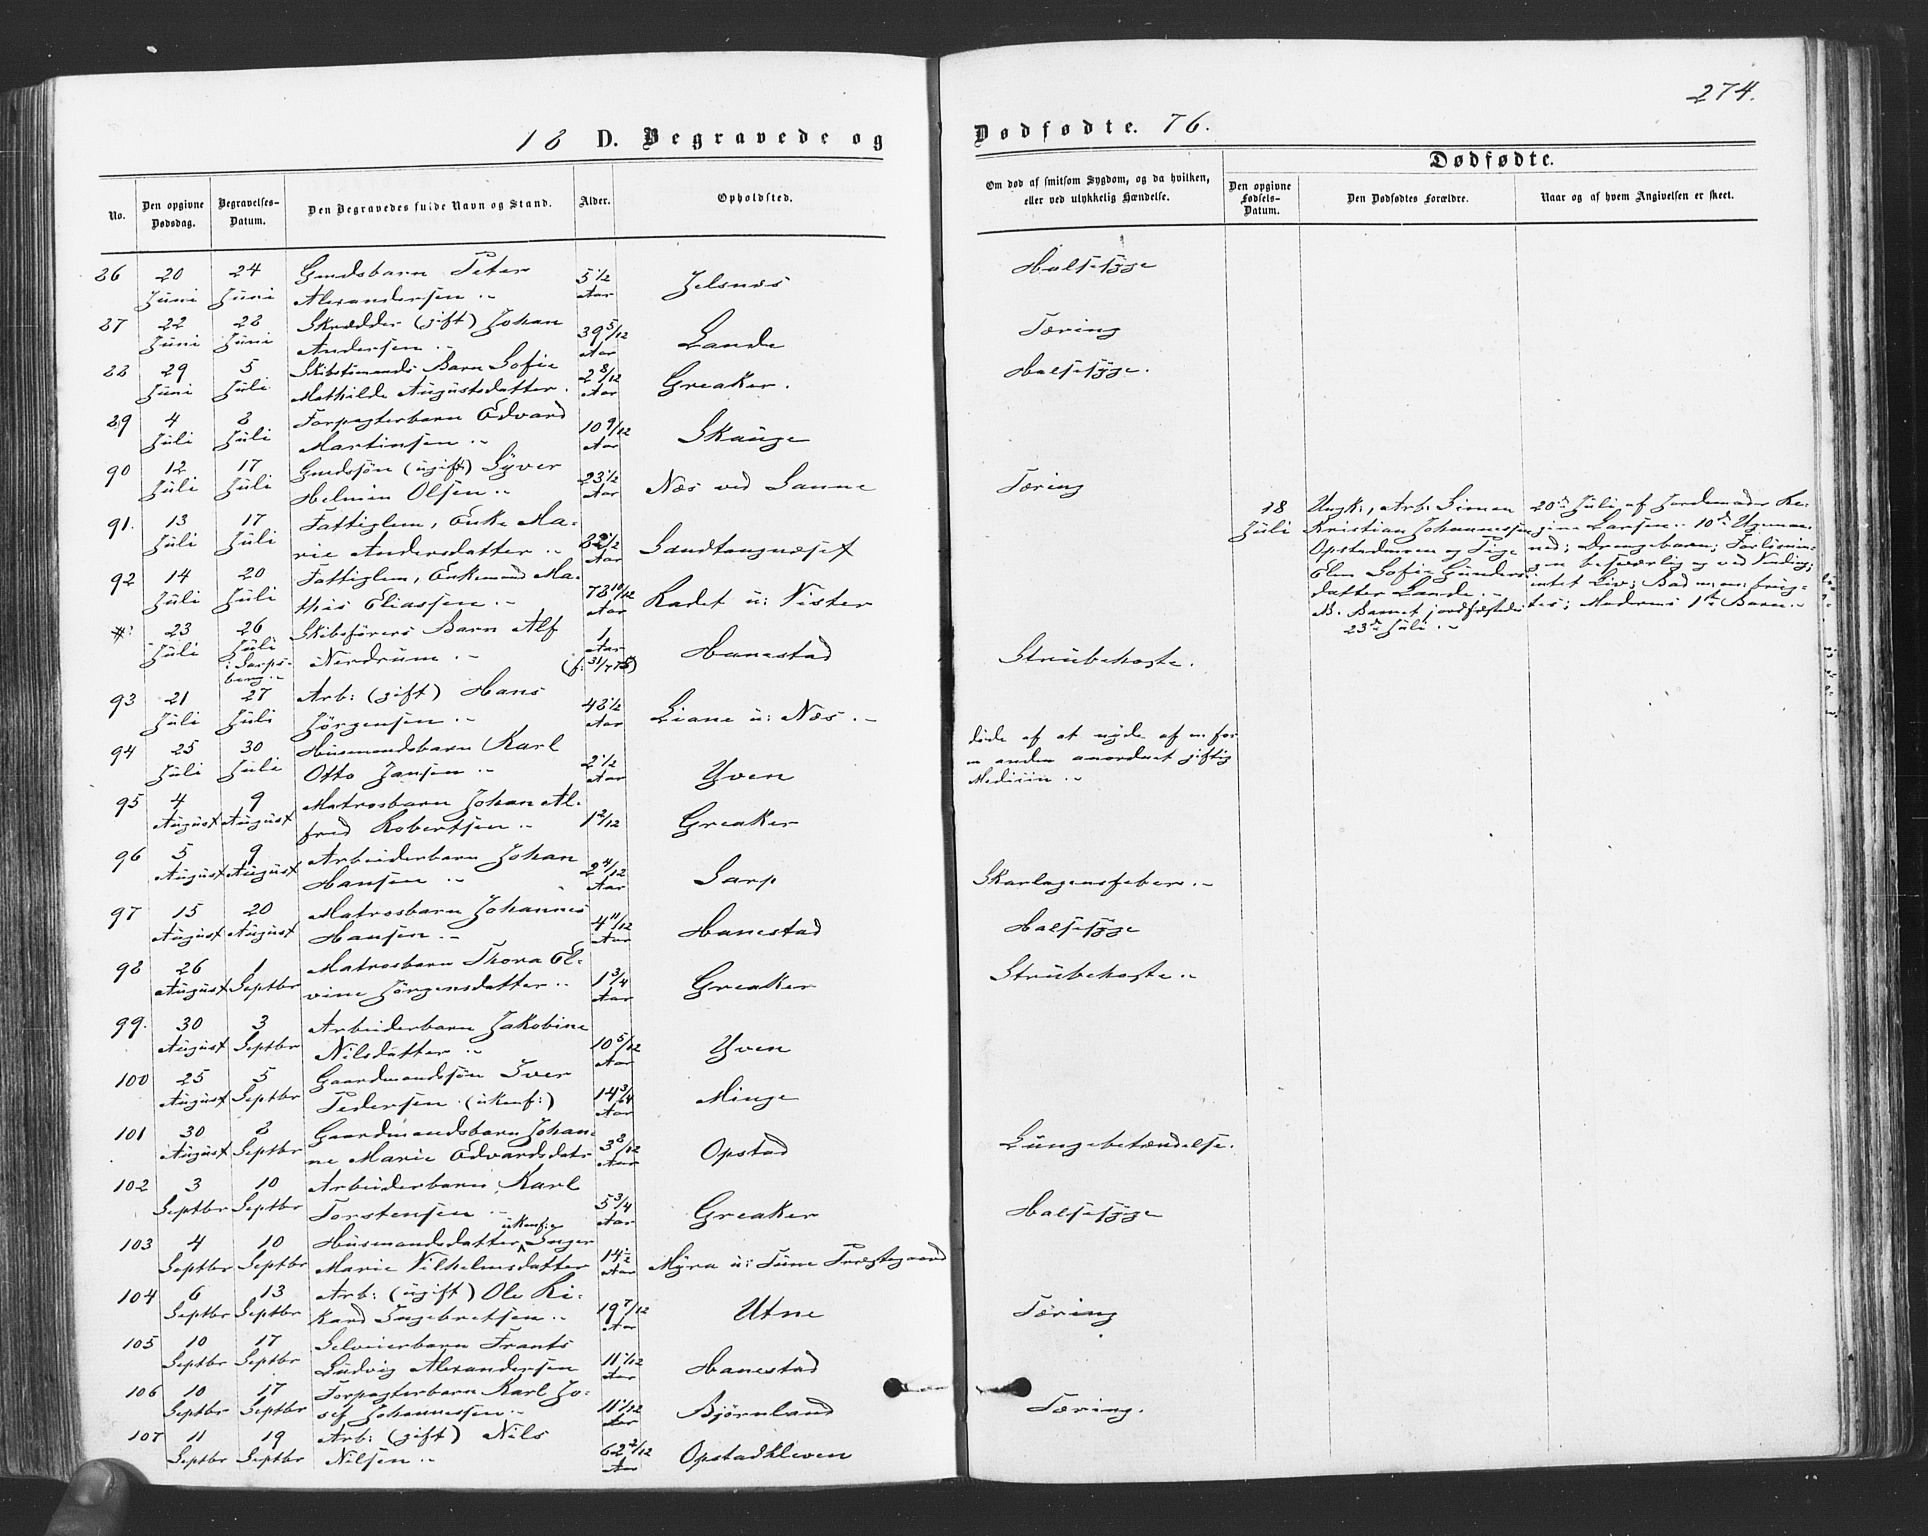 274.
18 D. Begravede og
Dødfødte. 76.
No.
Den opgivne Dødsdag.
Begravelses-Datum.
Den Begravedes fulde Navn og Stand.
Alder.
Opholdsted.
Om død af smitsom Sygdom, og da hvilken, eller ved ulykkelig Hændelse.
Dødfødte.
Den opgivne Fødsels-Datum.
Den Dødfødtes Forældre.
Naar og af hvem Angivelsen er skeet.
86 20 24 Gmdsbarn Peter 5 1/2 Jelsnæs Halssyge
Juni Juni Alexandersen .- Aar
87 22 28 Skrædder (gift) Johan 39 5/12 Lande Tæring
Juni Juni Andersen .- Aar
88 29 5 Skibstimands Barn Sofie 2 8/12 Greaker. Halssyge.
Juni Juli Mathilde Augustsdatter. Aar
89 4 8 Forpagterbarn Edvard 10 9/12 Skauge
Juli Juli Martinsen .- Aar
90 12 17 Gmdssøn (ugift) Syver 23 1/2 Næs ved Sanne Tæring
Juli Juli Helmin Olsen .- Aar
91. 13 17 Fattiglem, Enke Ma- Sandtangnæset
Juli Juli rie Andersdatter .- Aar
92 14 20 Fattiglem, Enkemand Ma- 78 10/12 Kadet u: Vister
Juli Juli this Eliassen .- Aar
#: 23 26 Skibsførers Barn Alf 1 Hanestad Strubehoste.
Juli Juli i Sarpsborg .- Nerdrum .- Aar (f: 31/7 75)
93 21 27 Arb: (gift) Hans 48 1/2 Liane u: Næs .-
Juli Juli Jørgensen .- Aar
94 25 30 Husmandsbarn Karl 2 1/2 Yven
Juli Juli Otto Jansen .- Aar
døde af at nyde af en for
en anden anordnet giftig
Medicin .-
95 4 9 Matrosbarn Johan Al- 1 2/12 Greaker
August August fred Robertsen .-
96 5 9 Arbeiderbarn Johan 2 4/12 Sarp Skarlagensfeber .-
August August Hansen .- Aar
97 15 20 Matrosbarn Johannes 4 11/12 Hanestad Halssyge
August August Hansen .- Aar
98 26 1 Matrosbarn Thora El- 1 3/4 Greaker Strubehoste .-
August Septbr vine Jørgensdatter .- Aar
99. 30 3 Arbeiderbarn Jakobine 10 5/12 Yven
August Septbr Nilsdatter .- Aar
100 25 5 Gaardmandssøn Iver 14 3/4 Minge
August Septbr Pedersen (ukonf:) Aar
101 30 8 Gaardmandsbarn Johan- 3 8/12 Opstad Lungebetændelse.
August Septbr ne Marie Edvardsdatr Aar
102 3 10 Arbeiderbarn Karl 5 3/4 Greaker Halssyge
Septbr Septbr Torstensen .- Aar
103 4 10 Husmandsdatter ukonf: Inger 14 1/2 Myra u: Tune Præstegaard
Septbr Septbr Marie Vilhelmsdatter Aar
104 6 13 Arb: (ugift) Ole Ri- 19 7/12 Utne Tæring
Septbr Septbr kard Ingebretsen .- Aar
105 10 17 Selveierbarn Frants 11 1/12 Hanestad
Septbr Septbr Ludvig Alexandersen Aar
106 10 17 Forpagterbarn Karl Jo- 11 1/12 Bjørnland Tæring.
Septbr Septbr sef Johannessen .- Aar
107 11 19 Arb: (gift) Nils 62 2/12 Opstadkleven
Septbr Septbr Nilsen .- Aar
18 Juli
Ungk:, Arb: Simen
Kristian Johannessen
Opstadmoen og Pige
Elen Sofie Gunders-
datter Lande .-
B. Barnet jordfæstedes
23de Juli .-
20de Juli af Jordmoder Re-
gine Larsen .. 10de Ugemaa-
ned; Drengebarn; Forløsnin-
gen besværlig og ved Vending;
intet Liv; Bad m: m: frug-
tes; Moderens 1ste Barn .-